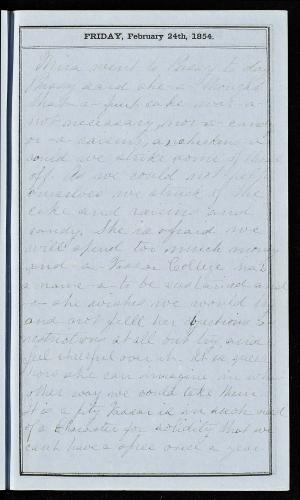 FRIDAY, February 24th, 1854.
Miss went to Prexy to day
Prexy said she - a - thought
that - a - fruit cake was - a -
not necessary nor - a - candy
or - a - raisins,
could we strike some of them
off. As we could not help
ourselves we struck off the
cake and raisins and
candy. She is afraid we
will spend too much money
and - a - Vassar College has
a name - a - to be sustained and
a - she wishes we would
and not feel her
restrictions at all but try and
feel cheerful over it. It is queer
how she can imagine in
other way we could take them.
It is a pity Vassar is in such need
of a character for solidity that we
can't have a spree once a year